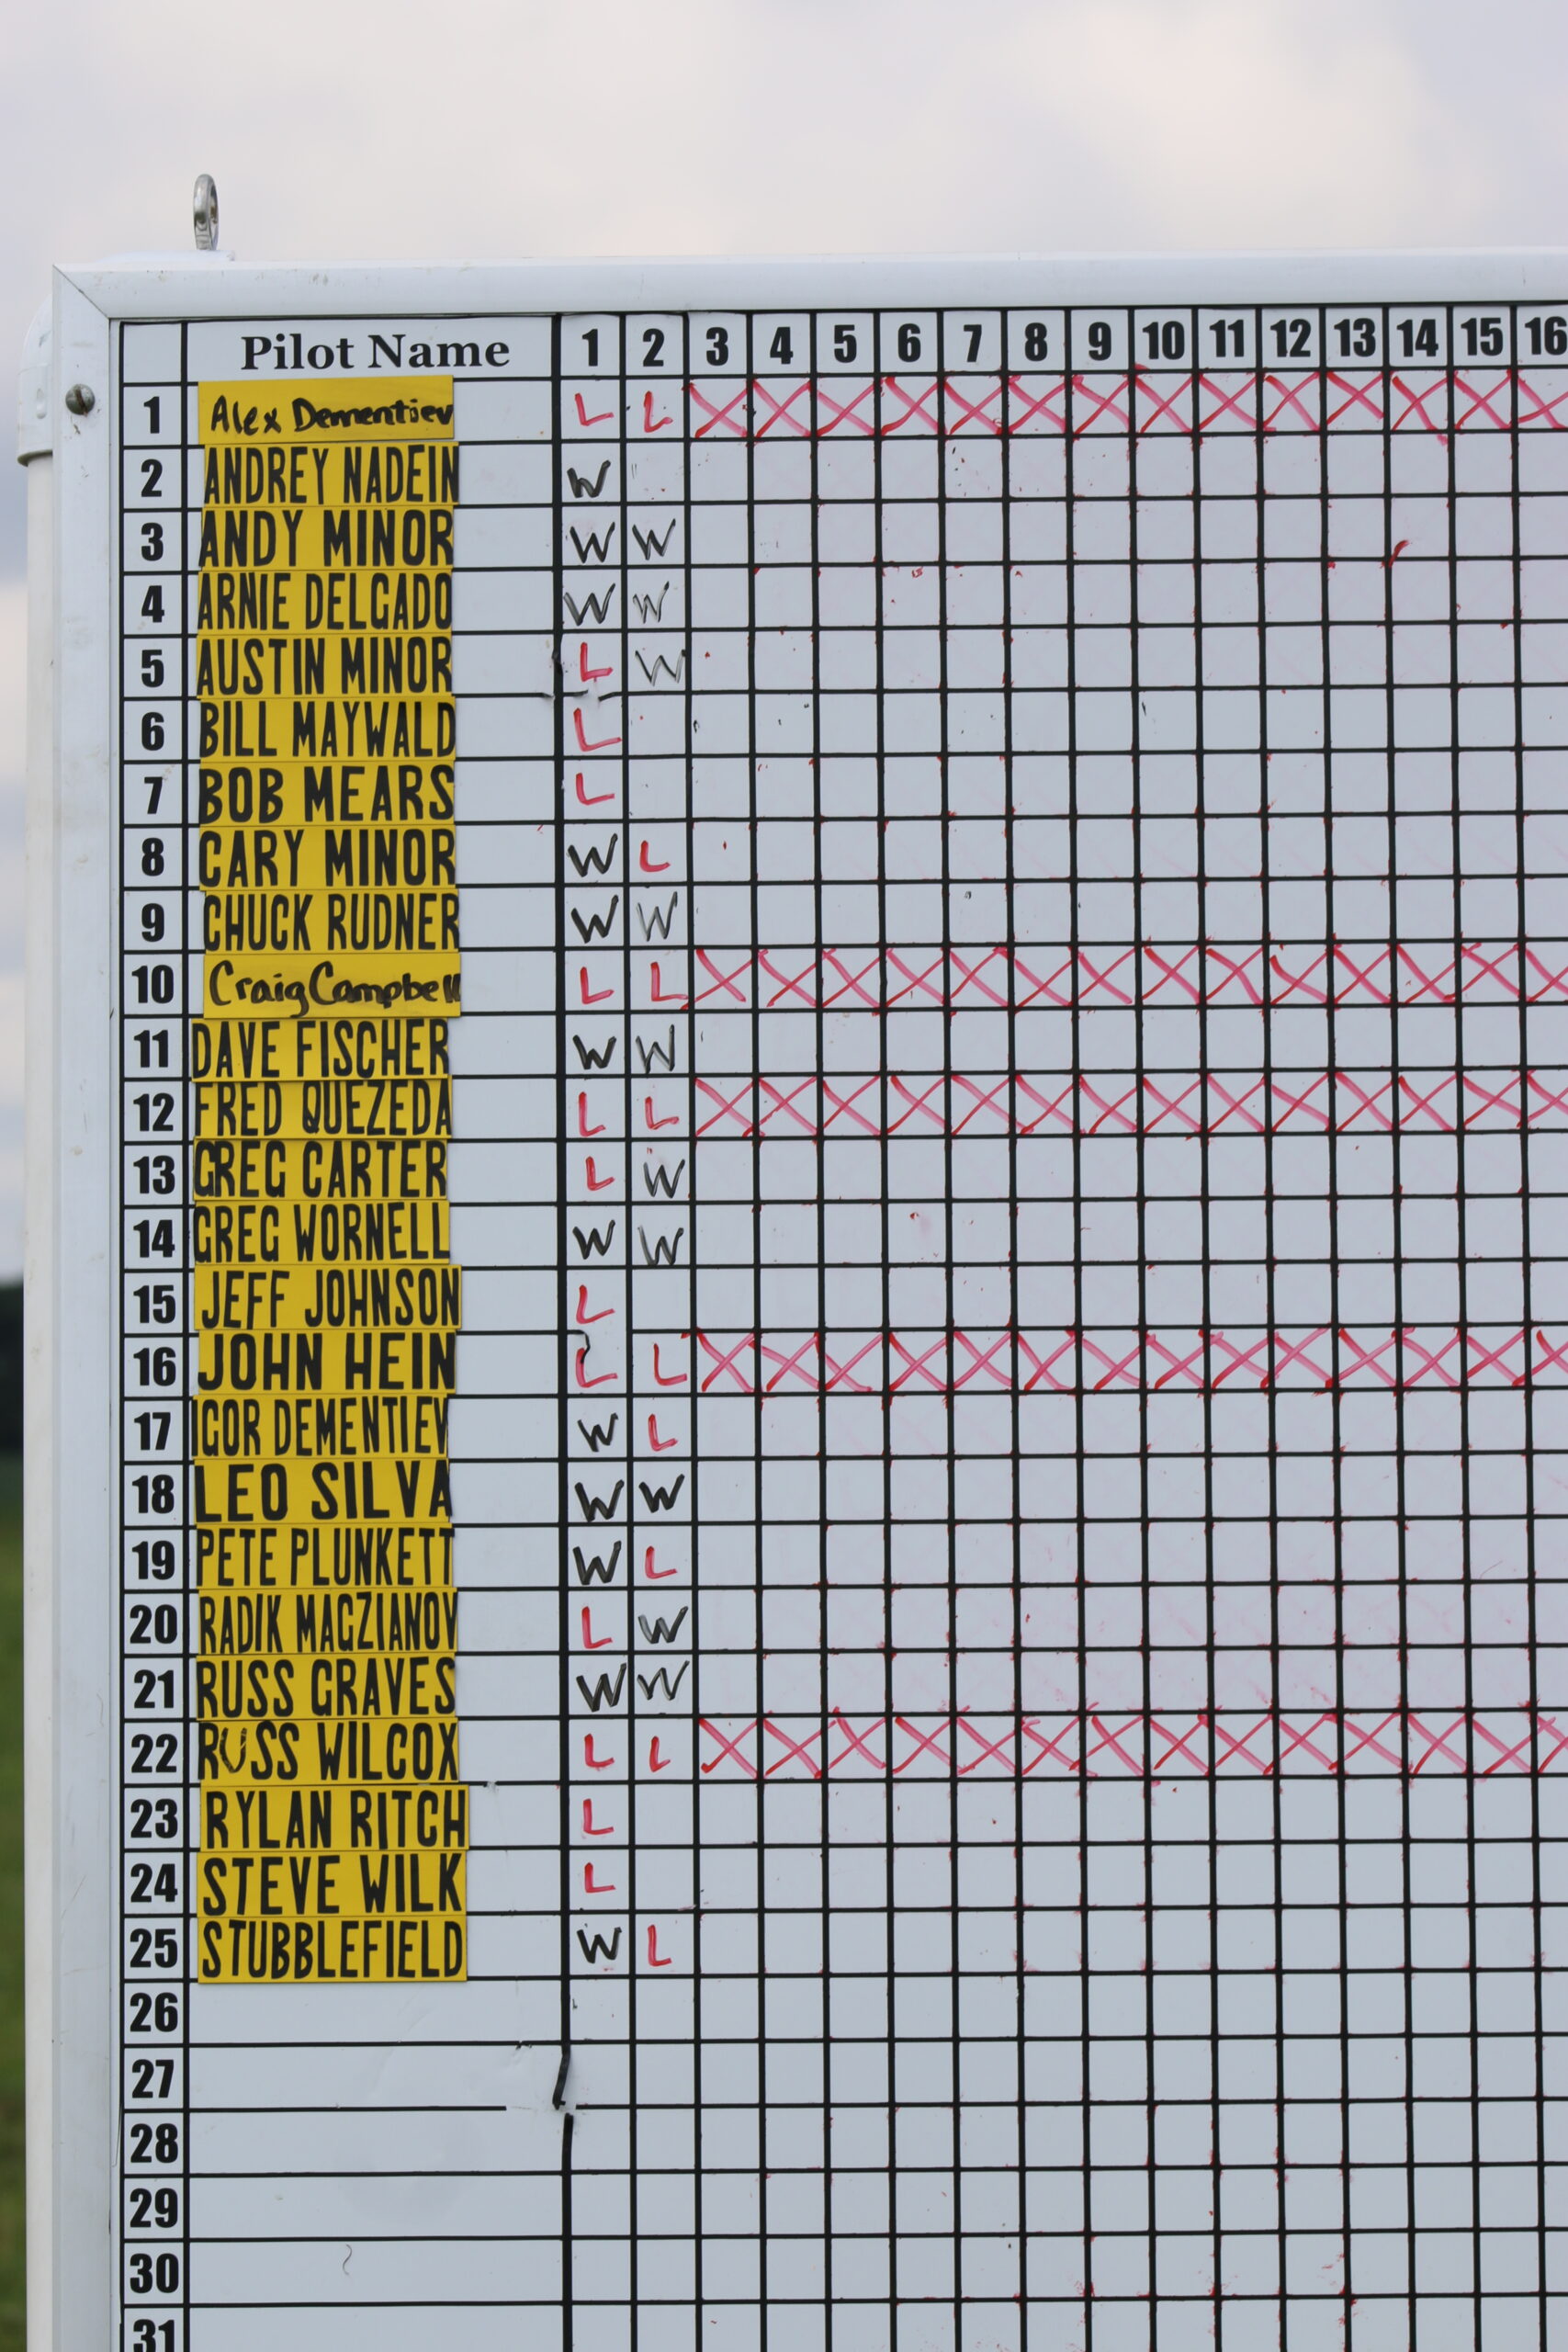 Pilot Name 1 2 3 4 5 6 7 8 9 10 11 12 13 14 15 16
1 Alex Dementiev L L X X X X X X X X X X X X X X
2 ANDREY NADEIN W
3 ANDY MINOR W W
4 ARNIE DELGADO W W
5 AUSTIN MINOR L W
6 BILL MAYWALD L
7 BOB MEARS L
8 CARY MINOR W L
9 CHUCK RUDNER W W
10 Craig Campbell L L X X X X X X X X X X X X X X
11 DAVE FISCHER W W
12 FRED QUEZEDA L L X X X X X X X X X X X X X X
13 GREG CARTER L W
14 GREG WORNELL W W
15 JEFF JOHNSON L
16 JOHN HEIN L L X X X X X X X X X X X X X X
17 IGOR DEMENTIEV W L
18 LEO SILVA W W
19 PETE PLUNKETT W L
20 RADIK MAGZIANOV L W
21 RUSS GRAVES W W
22 RUSS WILCOX L L X X X X X X X X X X X X X X
23 RYLAN RITCH L
24 STEVE WILK L
25 STUBBLEFIELD W L
26
27
28
29
30
31